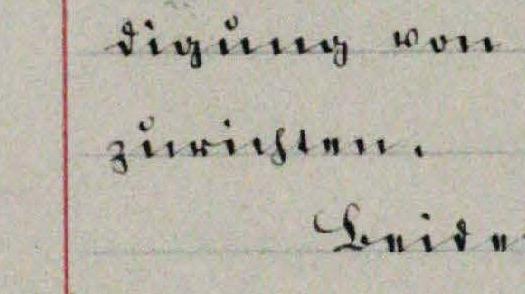 digung von
zurichten.
Beide